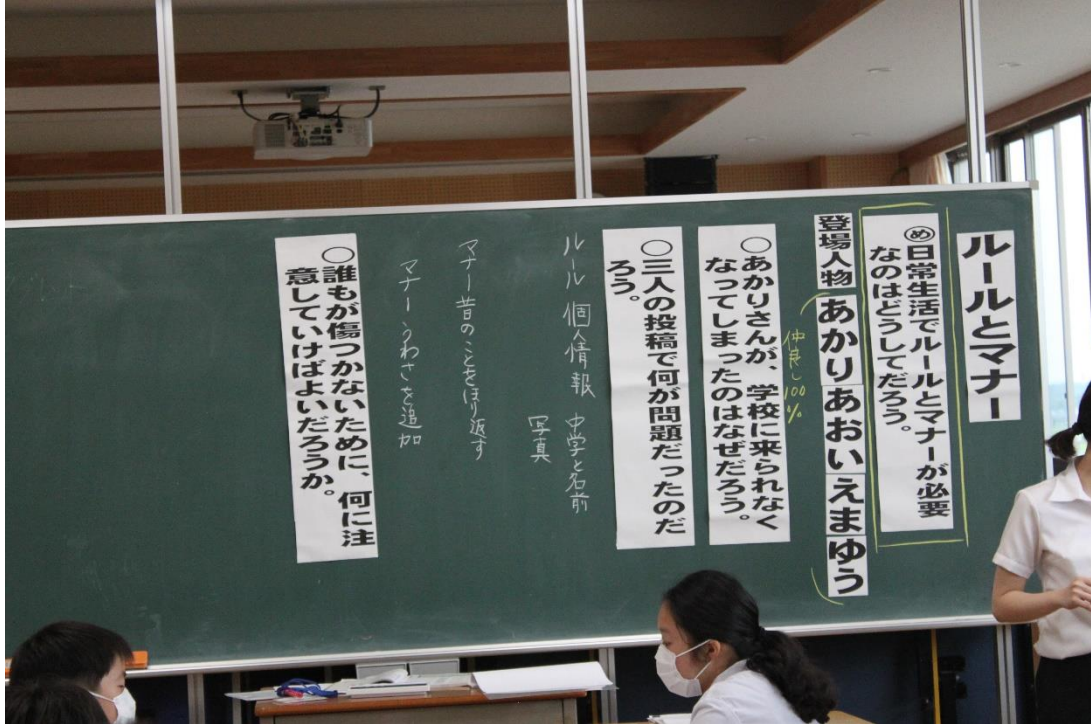 ルールとマナー
め日常生活でルールとマナーが必要
なのはどうしてだろう。
登場人物 あかり あおい えま ゆう
仲良し100%
〇あかりさんが、学校に来られなく
なってしまったのはなぜだろう。
〇三人の投稿で何が問題だったのだ
ろう。
ルール 個人情報 中学と名前
写真
マナー 昔のことをほり返す
マナー うわさを追加
〇誰もが傷つかないために、何に注
意していけばよいだろうか。